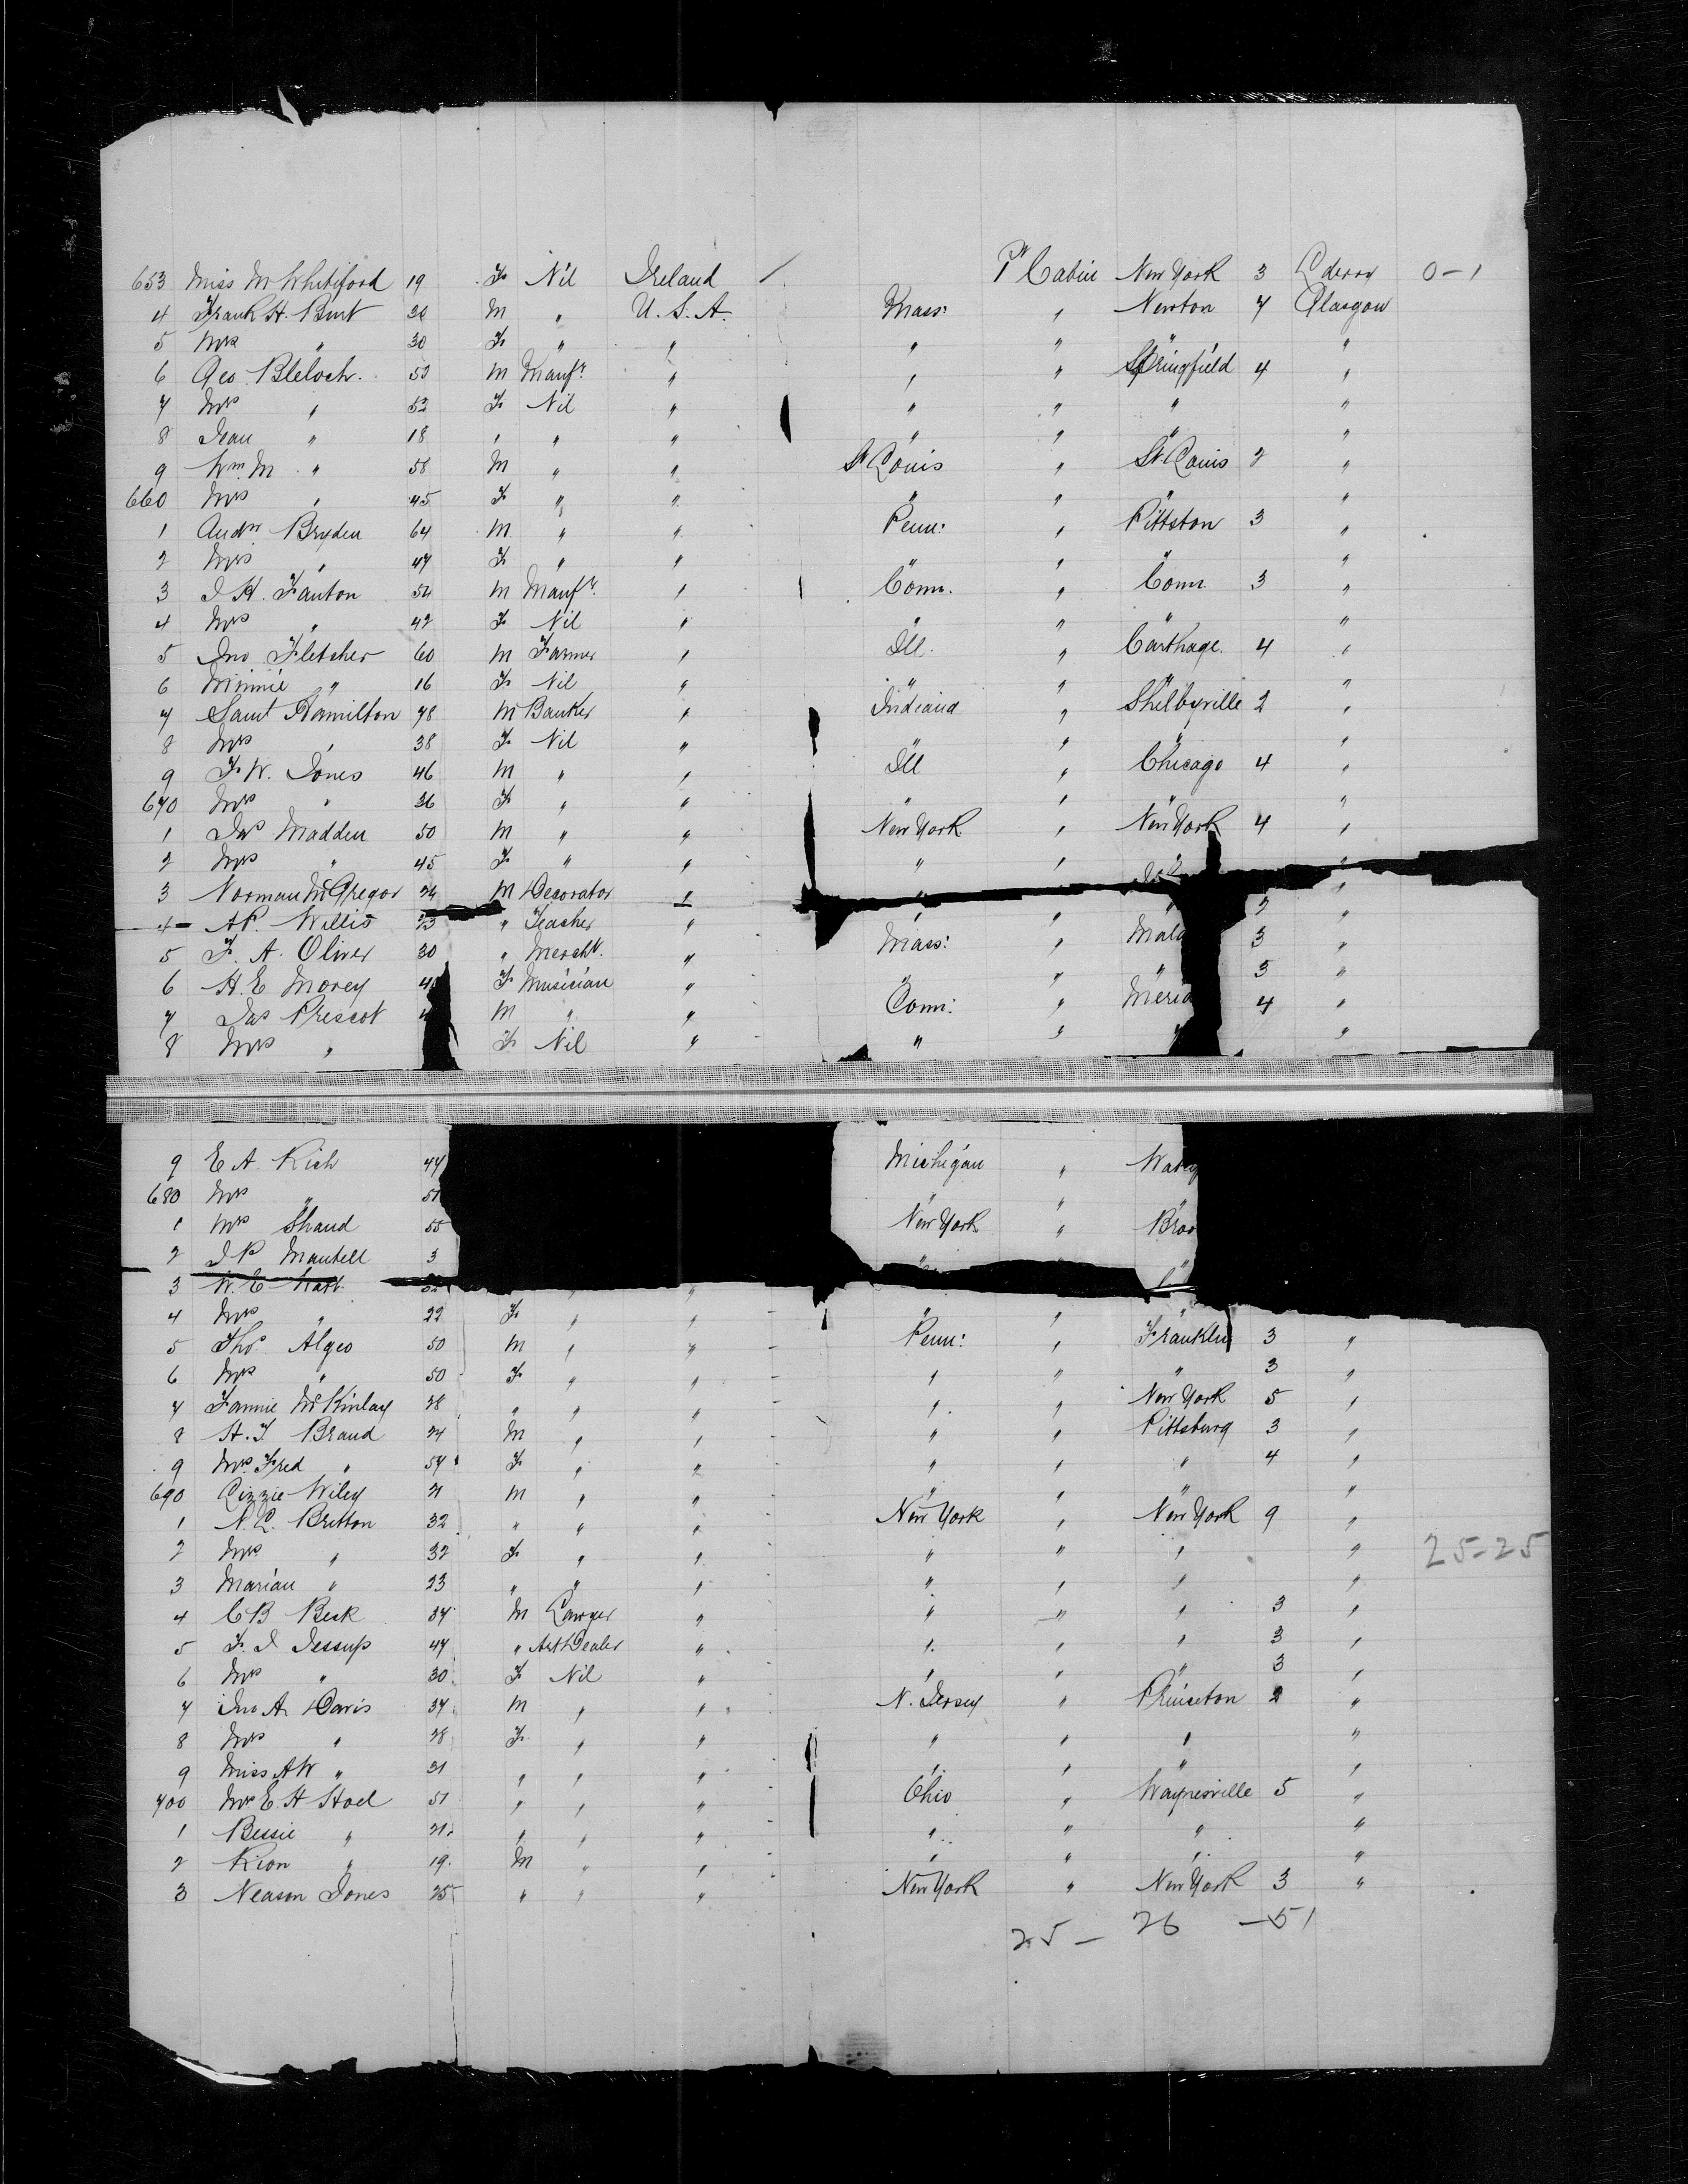 653 Miss M Whiteford 19 F Nil Ireland / 1st Cabin New York 3 L derry 0-1
4 Frank H. Burt 30 M " U.S.A. Mass: " Newton 7 Glasgow
5 Mrs " 30 F " " " " " "
6 Geo Bleloch. 53 M Manfr. " " " Springfield 4 "
7 Mrs " 52 F Nil " " " " "
8 Jean " 18 " " " " " "
9 Wm M " 58 M " " St Louis " St. Louis 2 "
660 Mrs " 45 F " " " " " "
1 Andw Bryden 64 M " " Penn: " Pittston 3 "
2 Mrs " 47 F " " " " "
3 J H. Fanton 54 M Manfr. " Conn. " Conn. 3 "
4 Mrs " 42 F Nil " " " " "
5 Jno Fletcher 60 M Farmer " Ill. " Carthage. 4 "
6 Minnie " 16 F Nil " " " "
7 Saml Hamilton 48 M Banker " Indiana " Shelbyville 2 "
8 Mrs " 38 F Nil " " " "
9 F. W. Jones 46 M " " Ill " Chicago 4 "
670 Mrs " 36 F " " " " " "
1 Jas Madden 50 M " " New York " New York 4 "
2 Mrs " 45 F " " " " "
3 Norman McGregor 24 M Decorator " " "
4 - A P. Willis 23 " Teacher " " " " 2 "
5 F. A. Oliver 30 " Mercht. " Mass: " Mald 3 "
6 H. E Morey 4 F Musician " " " 5 "
7 Jas Prescot M " " Conn: " Merid 4 "
8 Mrs " F Nil " " " " "
9 E A. Rich 44 Michigan "
680 Mrs " 51 " " "
1 Mrs Shand 55 New York " Broo
2 J P Mantell 3
3 W. E
4 Mrs " 22 F " " " " "
5 Thos Algeo 50 M " " Penn: " Franklin 3 "
6 Mrs " 50 F " " " " " 3 "
7 Fannie McKinlay 28 " " " " " New York 5 "
8 H. J Brand 24 M " " " " Pittsburg 3 "
9 Mrs. Fred " 54 F " " " " " 4 "
690 Lizzie Wiley 21 M " " " " " "
1 N. L. Britton 32 " " " New York " New York 9 "
2 Mrs " 32 F " " " " " " 25-25
3 Marian " 23 " " " " " " "
4 C B Beck 34 M Lawyer " " " " 3 "
5 F. J Jessup 44 " Art Dealer " " " " 3 "
6 Mrs " 30 F Nil " " " " 3 "
7 Jno A. Davis 34 M " " N. Jersey " Princeton 2 "
8 Mrs " 28 F " " " " " "
9 Miss AW " 31 " " " " " " "
700 Mrs E. H Stoel 51 " " " Ohio " Waynesville 5 "
1 Bessie " 21 " " " " " " "
2 Rion " 19 M " " " " " "
3 Neason Jones 25 " " " New York " New York 3 "
25 - 26 - 51